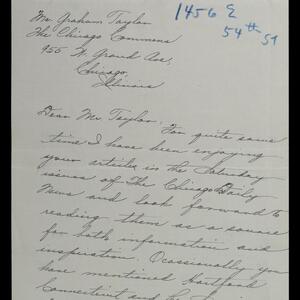 Mr. Graham Taylor
The Chicago Commons
955 W. Grand Ave,
Chicago,
Illinois
1456 E
54th St
Dear Mr. Taylor: For quite some
time I have been enjoying
your articles in the Saturday
issues of The Chicago Daily
News and look forward to
reading them as a source
for both information and
inspiration. Occasionally you
have mentioned Hartford
Connecticut and